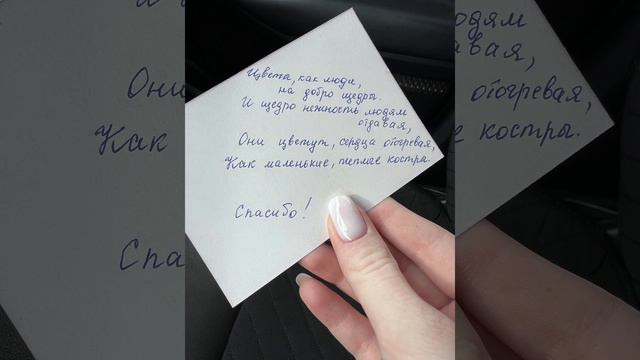 Цветы, как люди,
на добро щедры.
И щедро нежность людям
отдавая,
Они цветут, сердца отогревая,
Как маленькие, теплые костры.
Спасибо!